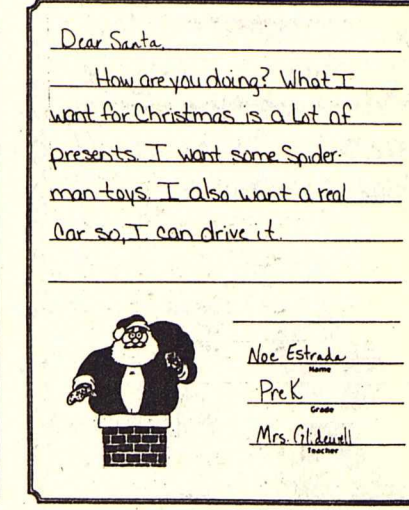 Dear Santa,
How are you doing? What I
want for Christmas is a lot of
presents. I want some Spider-
man toys. I also want a real
car so, I can drive it.
Noe Estrada
Name
Pre K
Grade
Mrs. Glidewell
Teacher